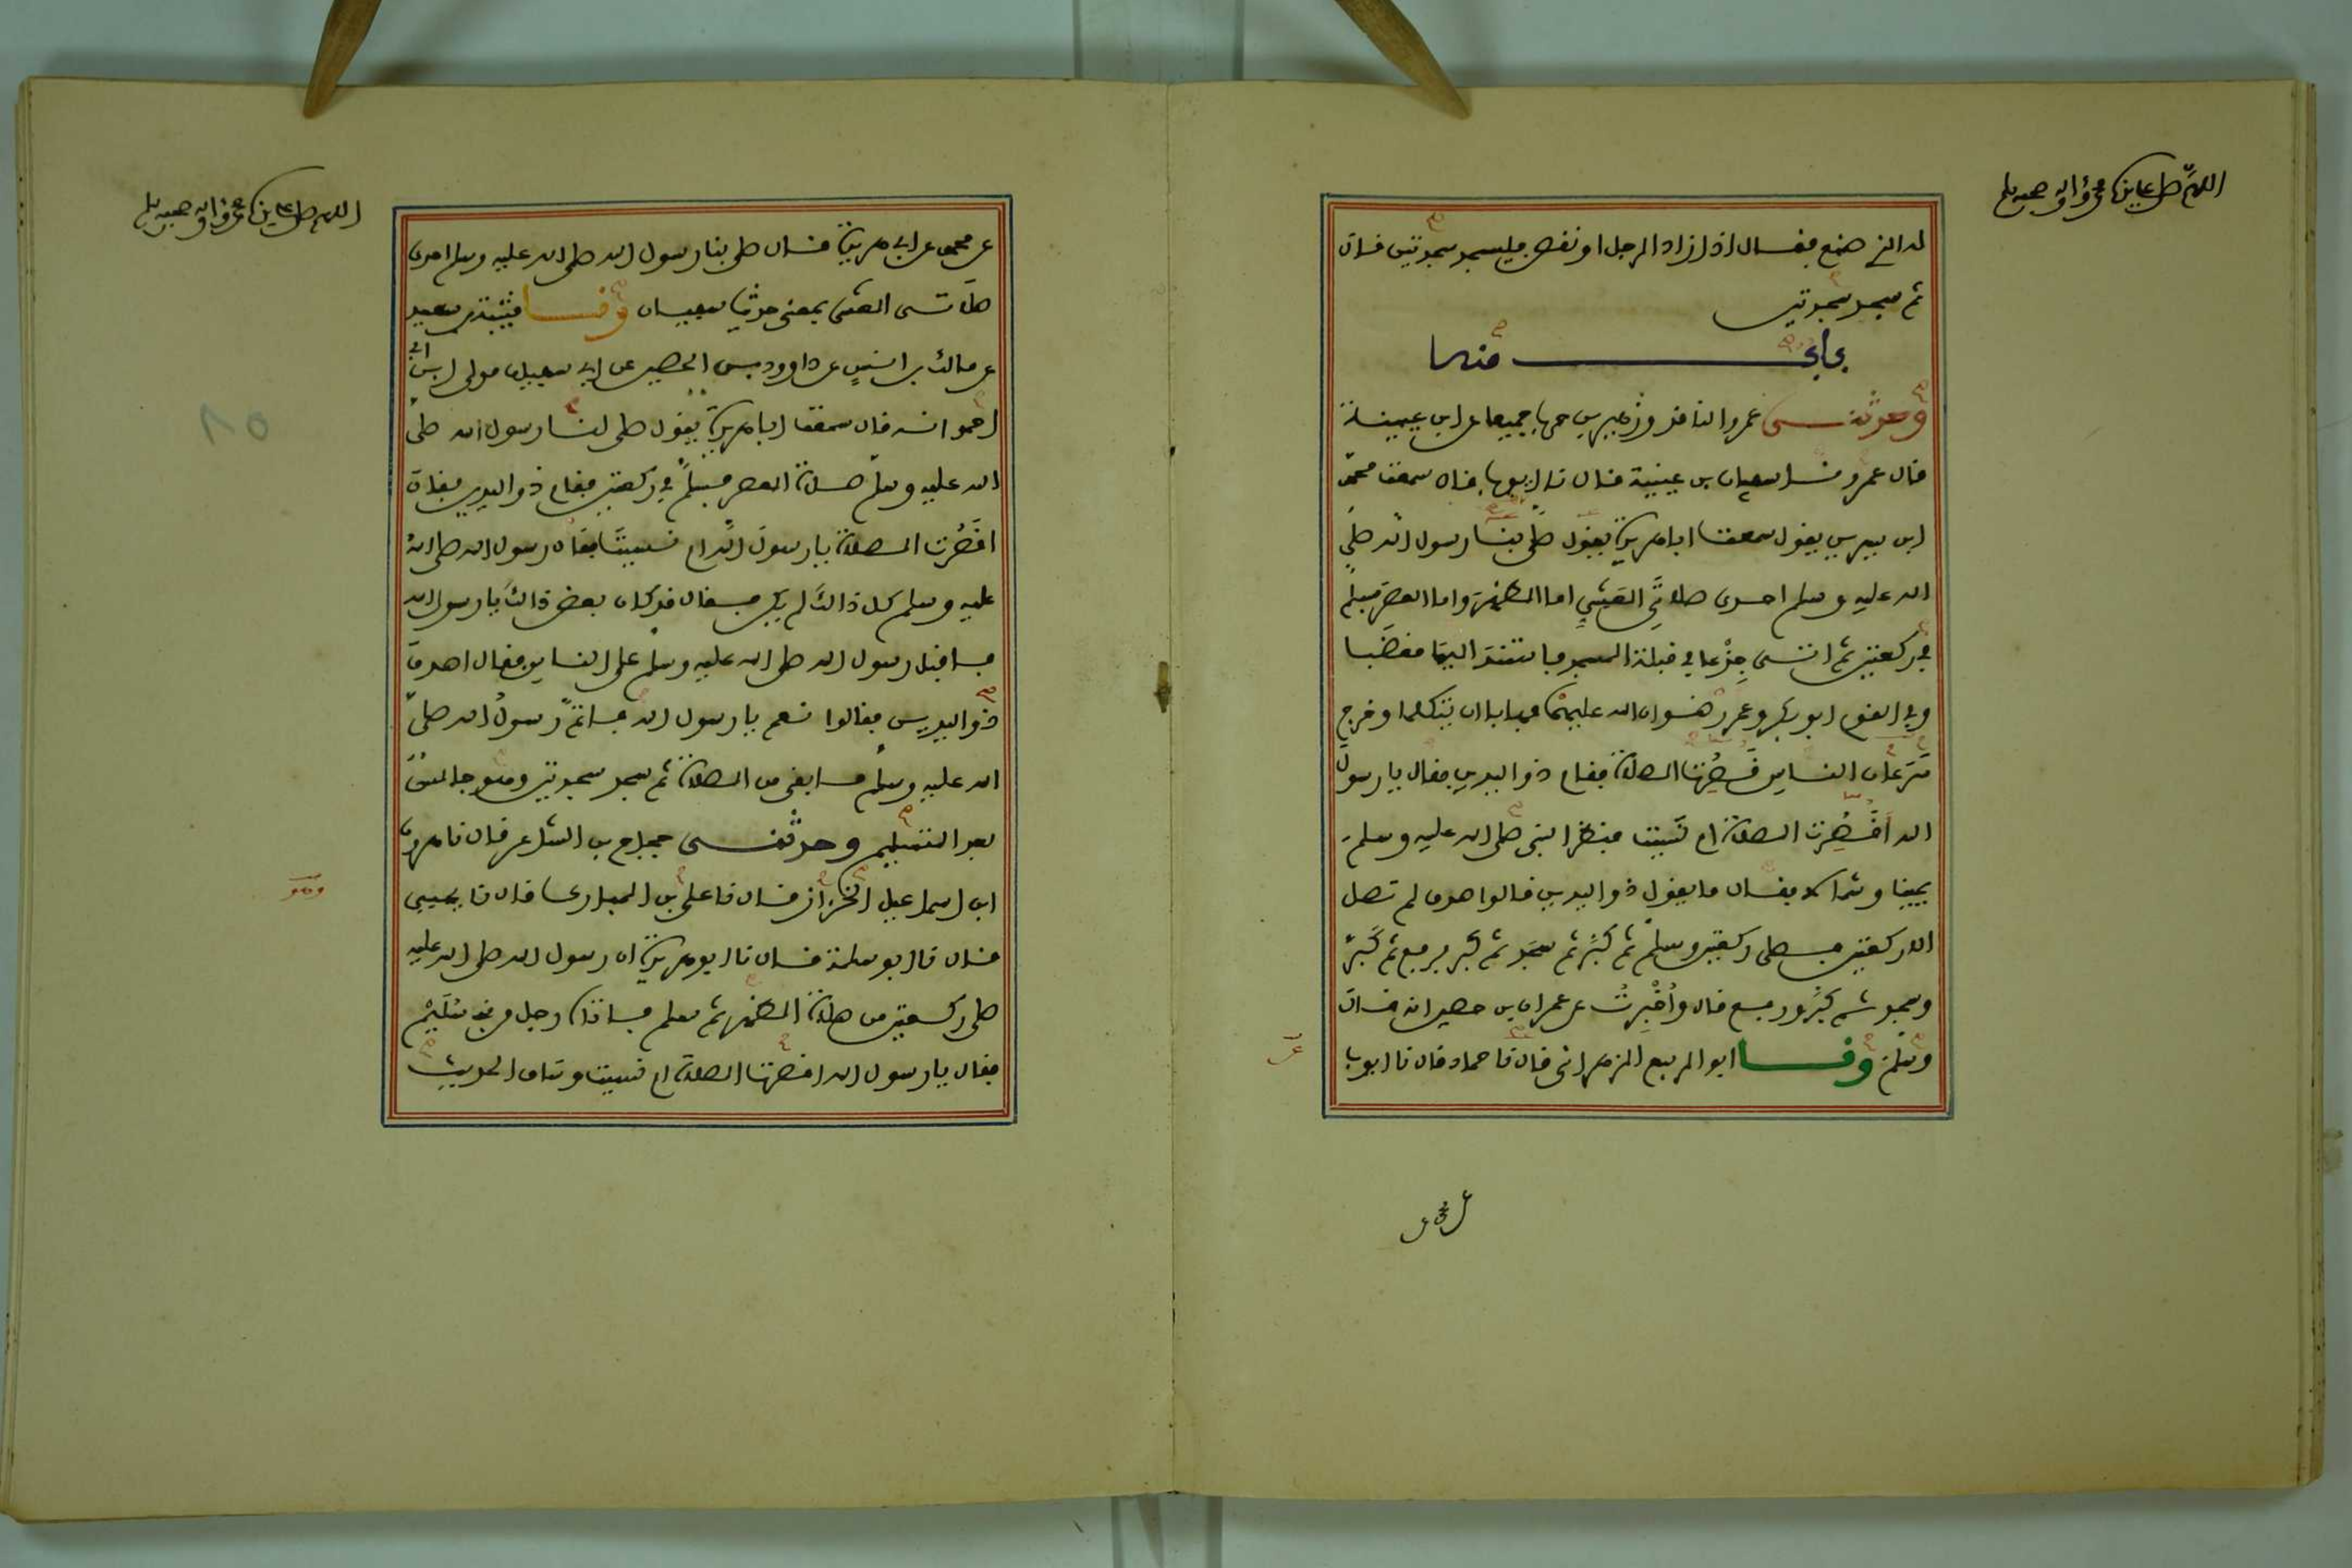 اللهم صل على سيدنا محمد وآله وصحبه وسلم
له الذي صنع فقال اذا زاد الرجل او نقص فليسجد سجدتين قال
ثم سجد سجدتين
باب منه
وحدثني عمرو الناقد وزهير بن حرب جميعا عن ابن عيينة
قال عمرو نا سفيان بن عيينة قال نا ايوب قال سمعت محمد
ابن سيرين يقول سمعت ابا هريرة يقول صلى بنا رسول الله صلى
الله عليه وسلم احدى صلاتي العشي اما الظهر واما العصر فسلم
في ركعتين ثم اتى جذعا في قبلة المسجد فاستند اليها مغضبا
وفي القوم ابو بكر وعمر رضوان الله عليهما فهابا ان يتكلما وخرج
سرعان الناس قصرت الصلاة فقام ذو اليدين فقال يا رسول
الله اقصرت الصلاة ام نسيت فنظر النبي صلى الله عليه وسلم
يمينا وشمالا فقال ما يقول ذو اليدين قالوا صدق لم تصل
الا ركعتين فصلى ركعتين وسلم ثم كبر ثم سجد ثم كبر فرفع ثم كبر
وسجد ثم كبر ورفع قال واخبرت عن عمران بن حصين انه قال
وسلم ونا ابو الربيع الزهراني قال نا حماد قال نا ايوب
عن محمد
اللهم صل على سيدنا محمد وآله وصحبه وسلم
عن محمد عن ابي هريرة قال صلى بنا رسول الله صلى الله عليه وسلم احدى
صلاتي العشي بمعنى حديث سفيان ونا قتيبة بن سعيد
عن مالك بن انس عن داوود بن الحصين عن ابي سفيان مولى ابن ابي
احمد انه قال سمعت ابا هريرة يقول صلى لنا رسول الله صلى
الله عليه وسلم صلاة العصر فسلم في ركعتين فقام ذو اليدين فقال
اقصرت الصلاة يا رسول الله ام نسيت فقال رسول الله صلى الله
عليه وسلم كل ذالك لم يكن فقال قد كان بعض ذالك يا رسول الله
فاقبل رسول الله صلى الله عليه وسلم على الناس فقال اصدق
ذو اليدين فقالوا نعم يا رسول الله فاتم رسول الله صلى
الله عليه وسلم ما بقي من الصلاة ثم سجد سجدتين وهو جالس
بعد التسليم وحدثني حجاج بن الشاعر قال نا هرون
ابن اسماعيل الخزاز قال نا علي بن المبارك قال نا يحيى
قال نا ابو سلمة قال نا ابو هريرة ان رسول الله صلى الله عليه
صلى ركعتين من صلاة الظهر ثم سلم فاتاه رجل من بني سليم
فقال يا رسول الله اقصرت الصلاة ام نسيت وساق الحديث